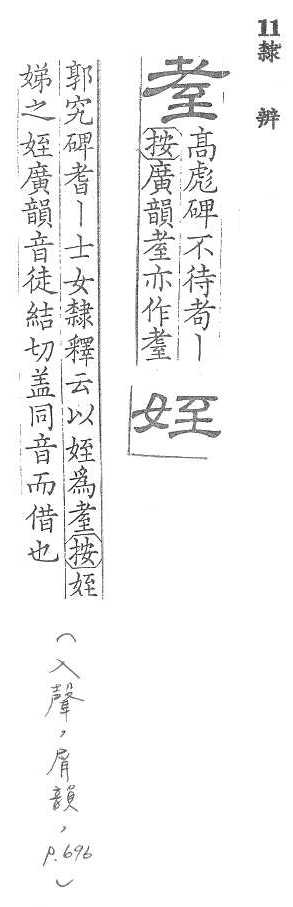 11 隸辨
耊
高彪碑不待耇丨
按廣韻耋亦作耊
姪
郭究碑耆丨士女隸釋云以姪爲耋按姪
娣之姪廣韻音徒結切盖同音而借也
(入聲,屑韻,p.696)